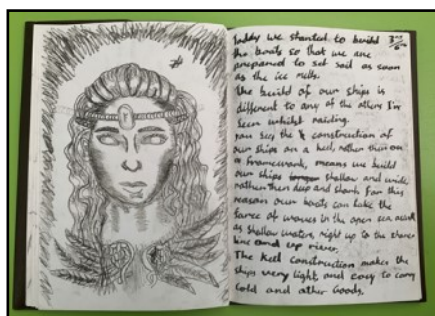 Today we started to build
the boats so that we are
prepared to set sail as soon
as the ice melts.
The build of our ships is
different to any of the others I've
seen whilst raiding.
you see, the construction of
our ships on a keel, rather then on
a framework, means we build
our ships shallow and wide,
rather then deep and sharp. For this
reason our boats can take the
force of waves in the open sea as well
as shallow waters, right up to the shore
line and up river.
The Keel construction makes the
ships very light, and easy to carry
Gold and other Goods.